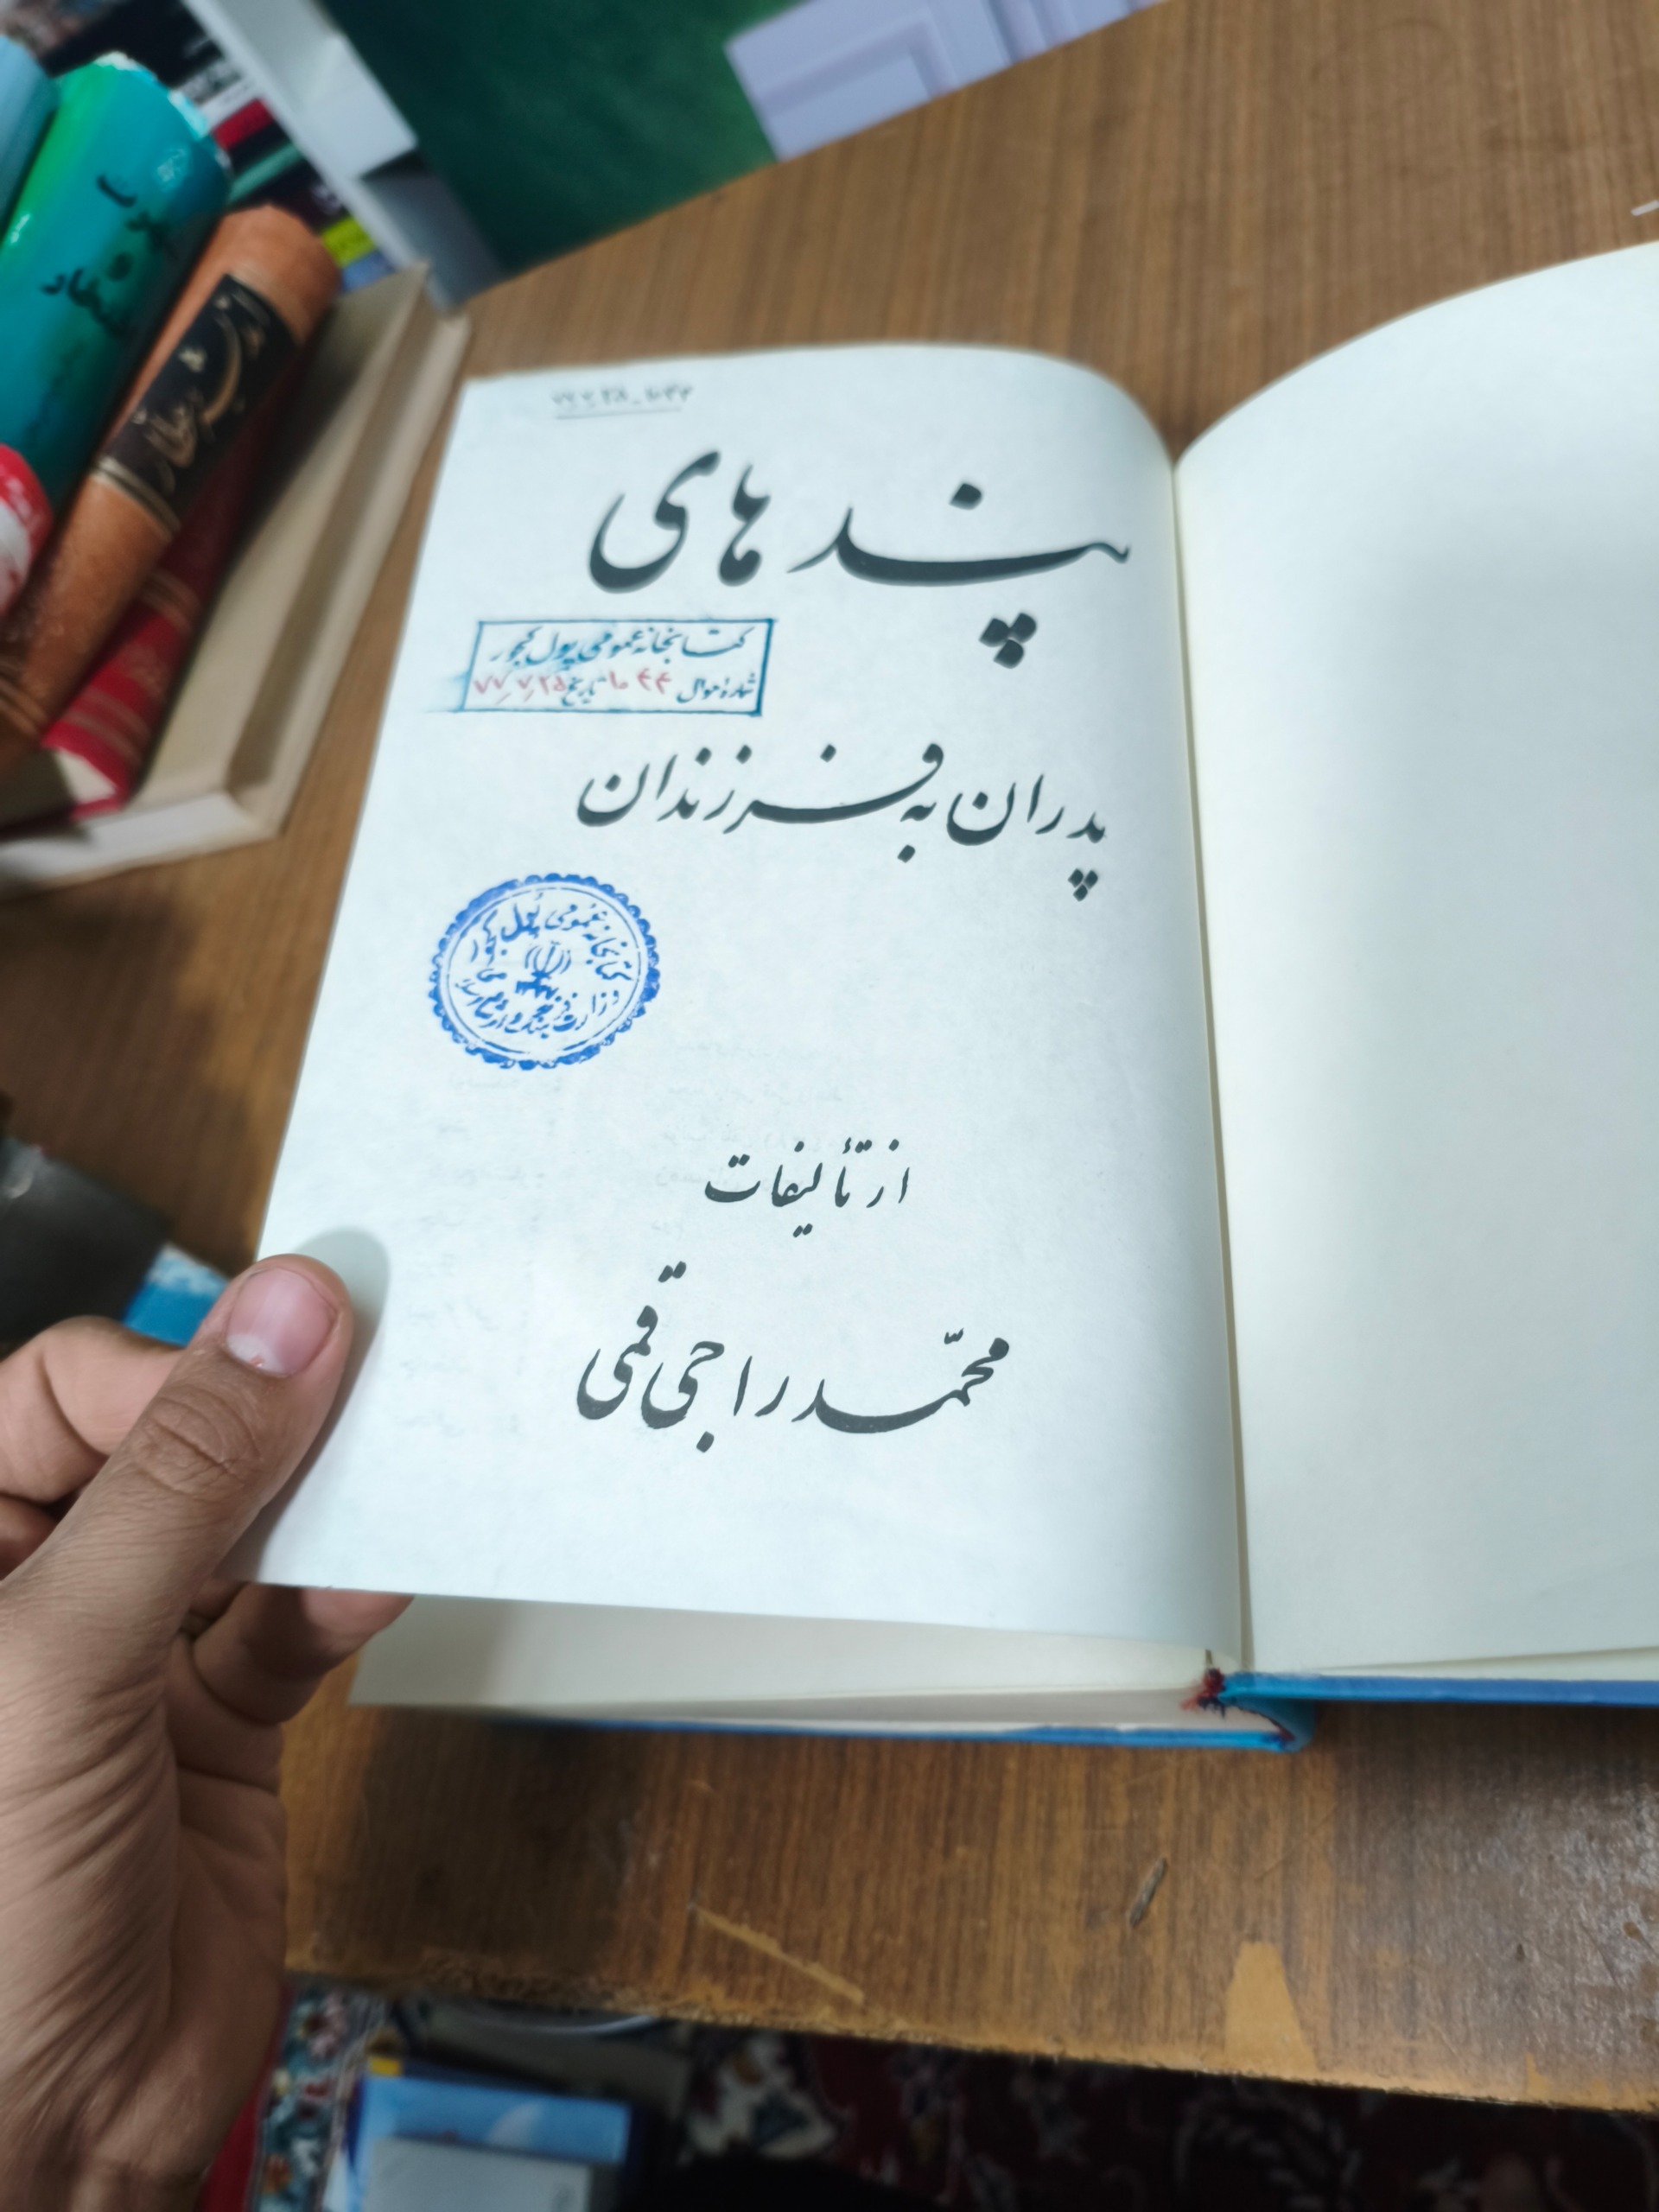 پندهای
کتابخانه عمومی پول کجور
شماره اموال ۱۰۴۴ تاریخ ۷۷/۷/۲۵
پدران به فرزندان
کتابخانه عمومی پول کجور
وزارت فرهنگ و ارشاد اسلامی
از تألیفات
محمّد راجی قمی